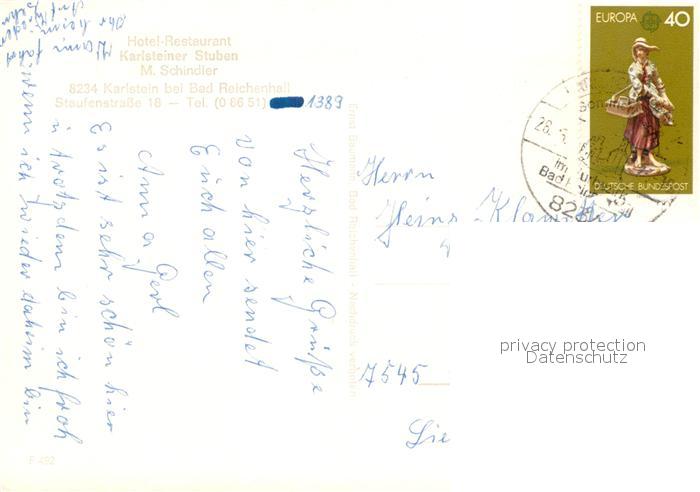 Hotel-Restaurant
Karlsteiner Stuben
M. Schindler
8234 Karlstein bei Bad Reichenhall
Staufenstraße 18 – Tel. (0 86 51) 1389
Herzliche Grüße
von hier sendet
Euch allen
Anna Gerl
Es ist sehr schön hier
u trotzdem bin ich froh
wenn ich wieder daheim bin
Ernst Baumann, Bad Reichenhall - Nachdruck verboten
Herrn
Heinz
7545
F 492
EUROPA 40
DEUTSCHE BUNDESPOST
privacy protection
Datenschutz